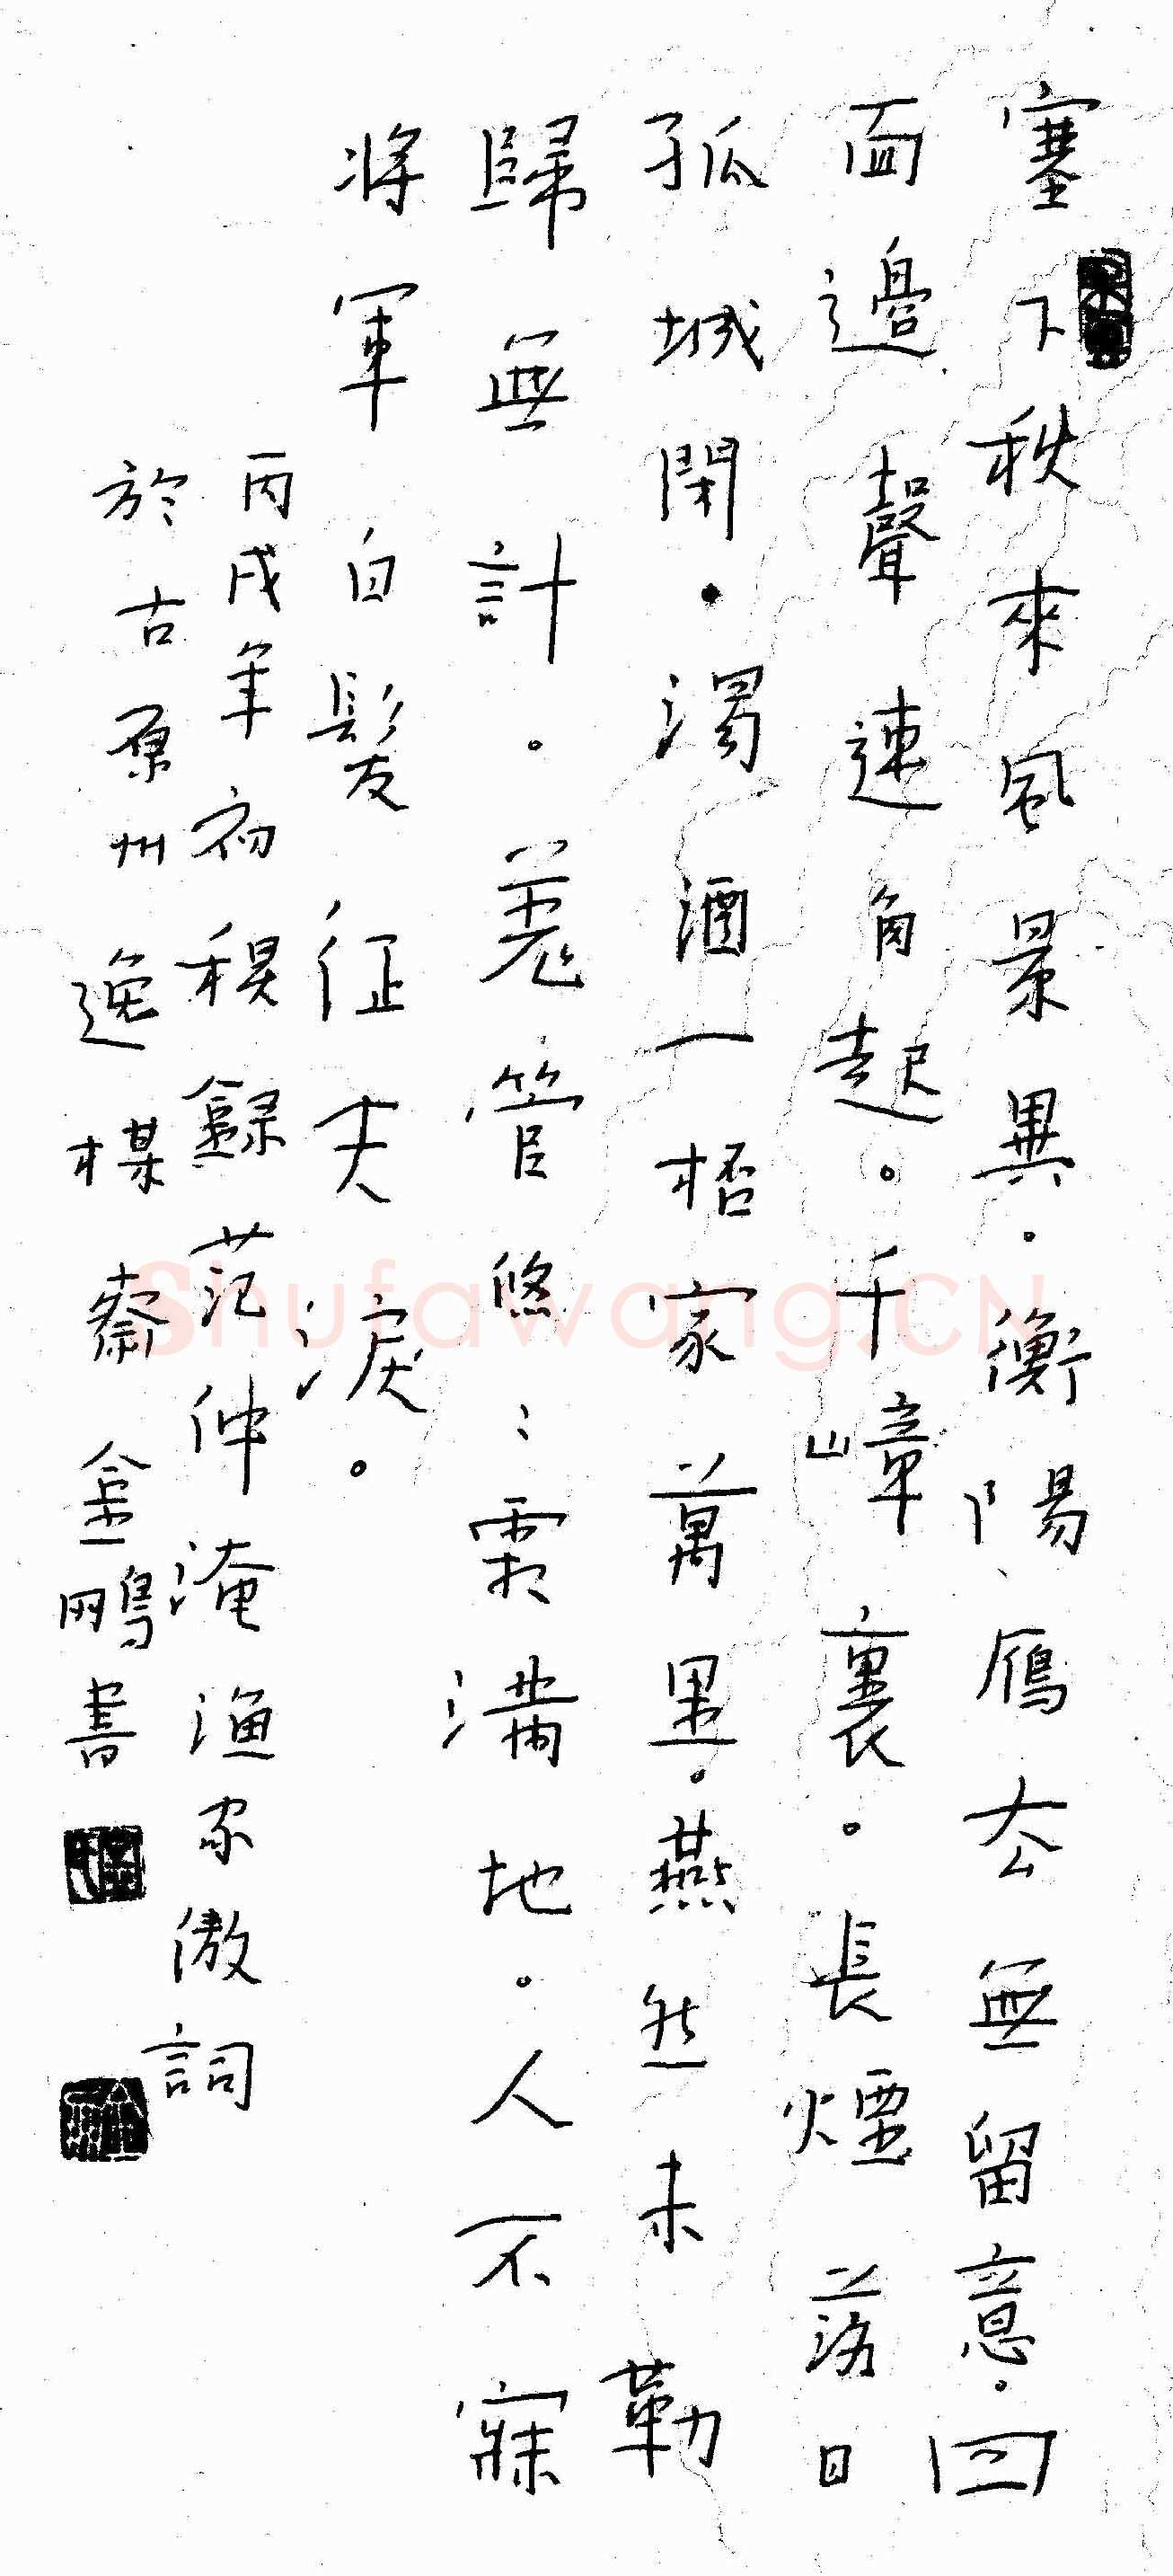 塞下秋來風景異。衡陽雁去無留意。四
面邊聲連角起。千嶂裏。長煙落日
孤城閉。濁酒一桮家萬里。燕然未勒
歸無計。羌管悠〻霜滿地。人不寐
將軍白髮征夫淚。
丙戌年初稧錄范仲淹漁家傲詞
於古原州逸楳齋金鵬書
Shufawang.CN